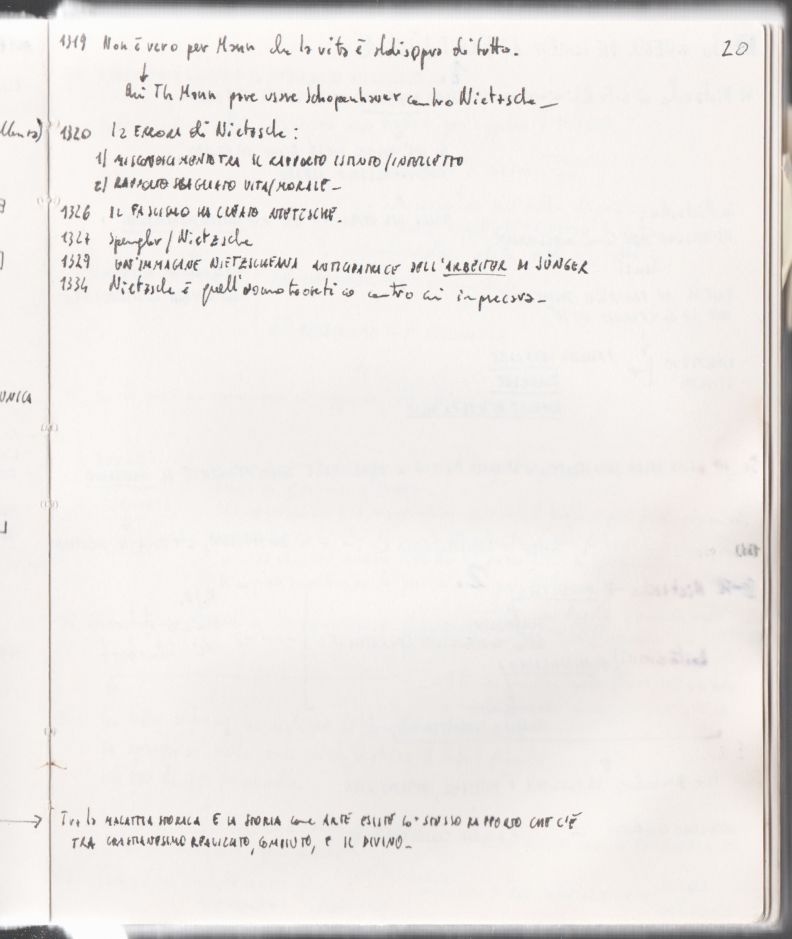 20
1319 Non è vero per Mann che la vita è al disopra di tutto.
↓
Qui Th Mann pare usare Schopenhauer contro Nietzsche
1320 I 2 ERRORI di Nietzsche:
1) MISCONOSCIMENTO TRA IL RAPPORTO ISTINTO/INTELLETTO
2) RAPPORTO SBAGLIATO VITA/MORALE
1326 IL FASCISMO HA CREATO NIETZSCHE.
1327 Spengler/Nietzsche
1329 UN'IMMAGINE NIETZSCHEANA ANTICIPATRICE DELL'ARBEITER DI JÜNGER
1334 Nietzsche è quell'uomo teoretico contro cui imprecava
→ Tra la MALATTIA STORICA E LA STORIA come ARTE ESISTE LO STESSO RAPPORTO CHE C'È
TRA CRISTIANESIMO REALIZZATO, COMPIUTO, E IL DIVINO
UNICA